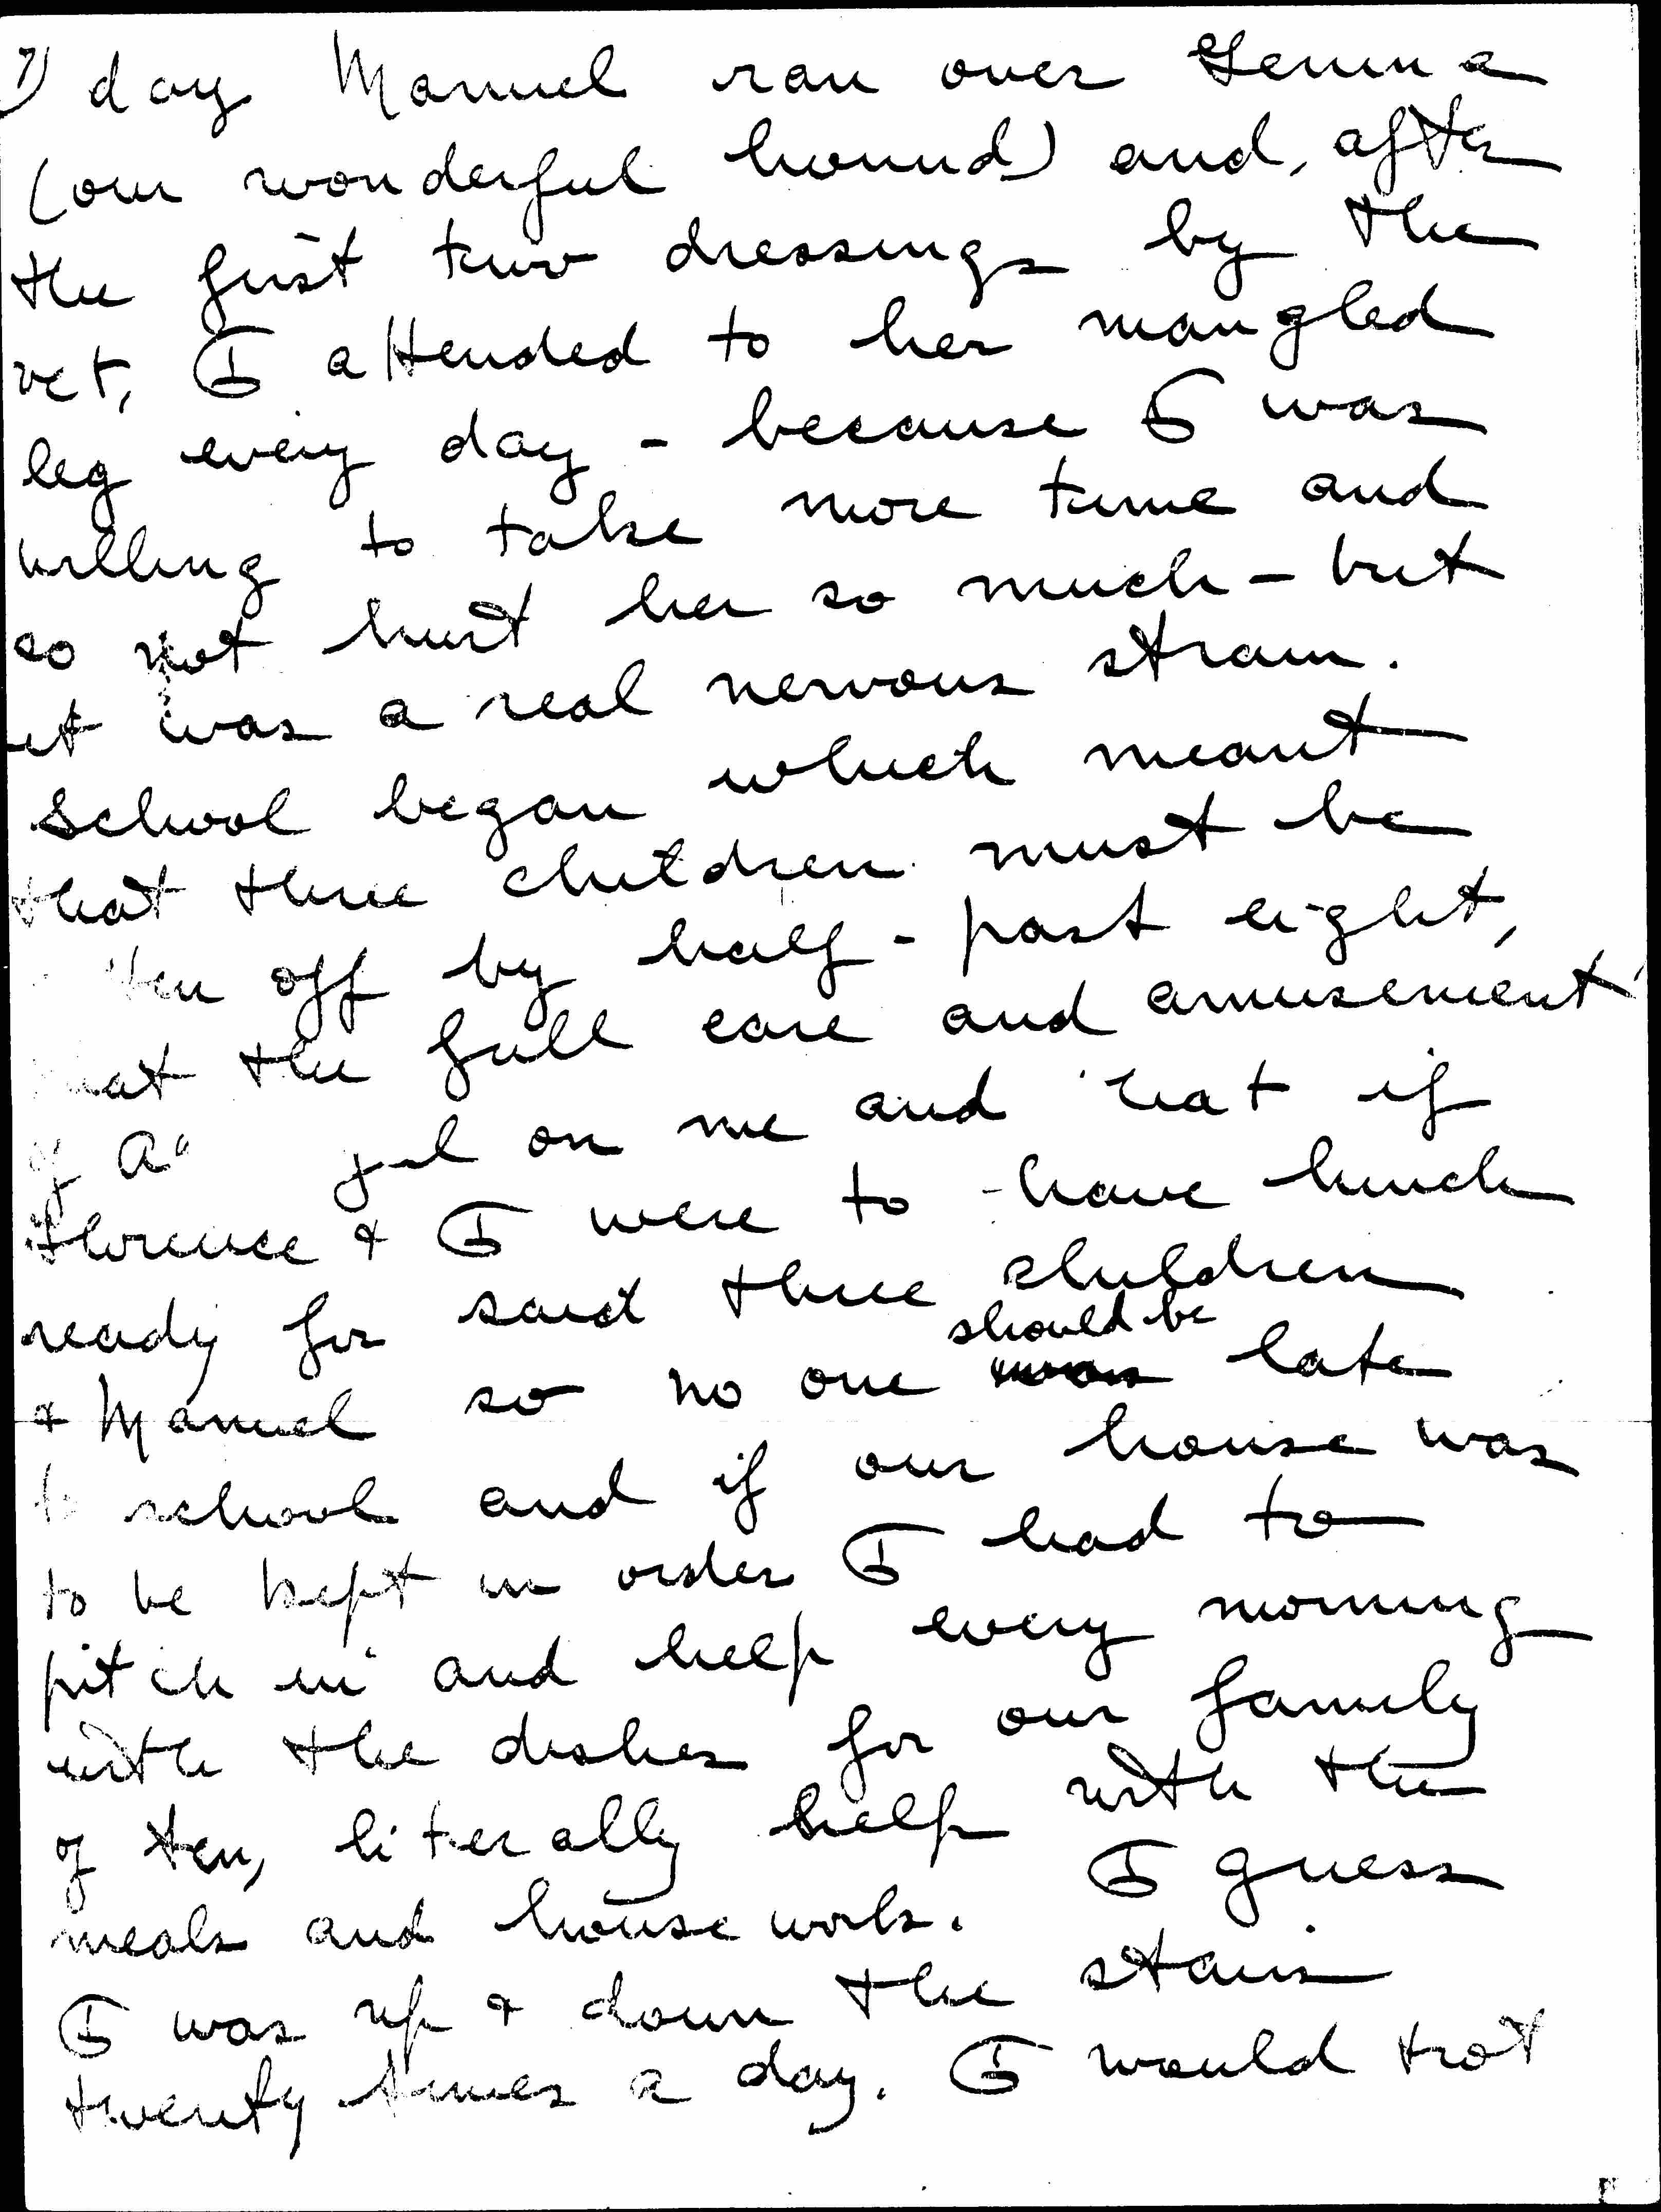 7) day Manuel ran over
(our wonderful hound) and, after
the first two dressings by the
vet, I attended to her mangled
leg every day - because I was
willing to take more time and
so not hurt her so much - but
it was a real nervous strain.
School began which meant
that three children must be
off by half - past eight,
that the full care and amusement
of on me and that if
Florence & I were to have lunch
ready for said three children
& Manuel so no one should be late
to school and if our house was
to be kept in order I had to
pitch in and help every morning
with the dishes for our family
of ten, literally help with the
meals and house work. I guess
I was up & down the stairs
twenty times a day. I would trot